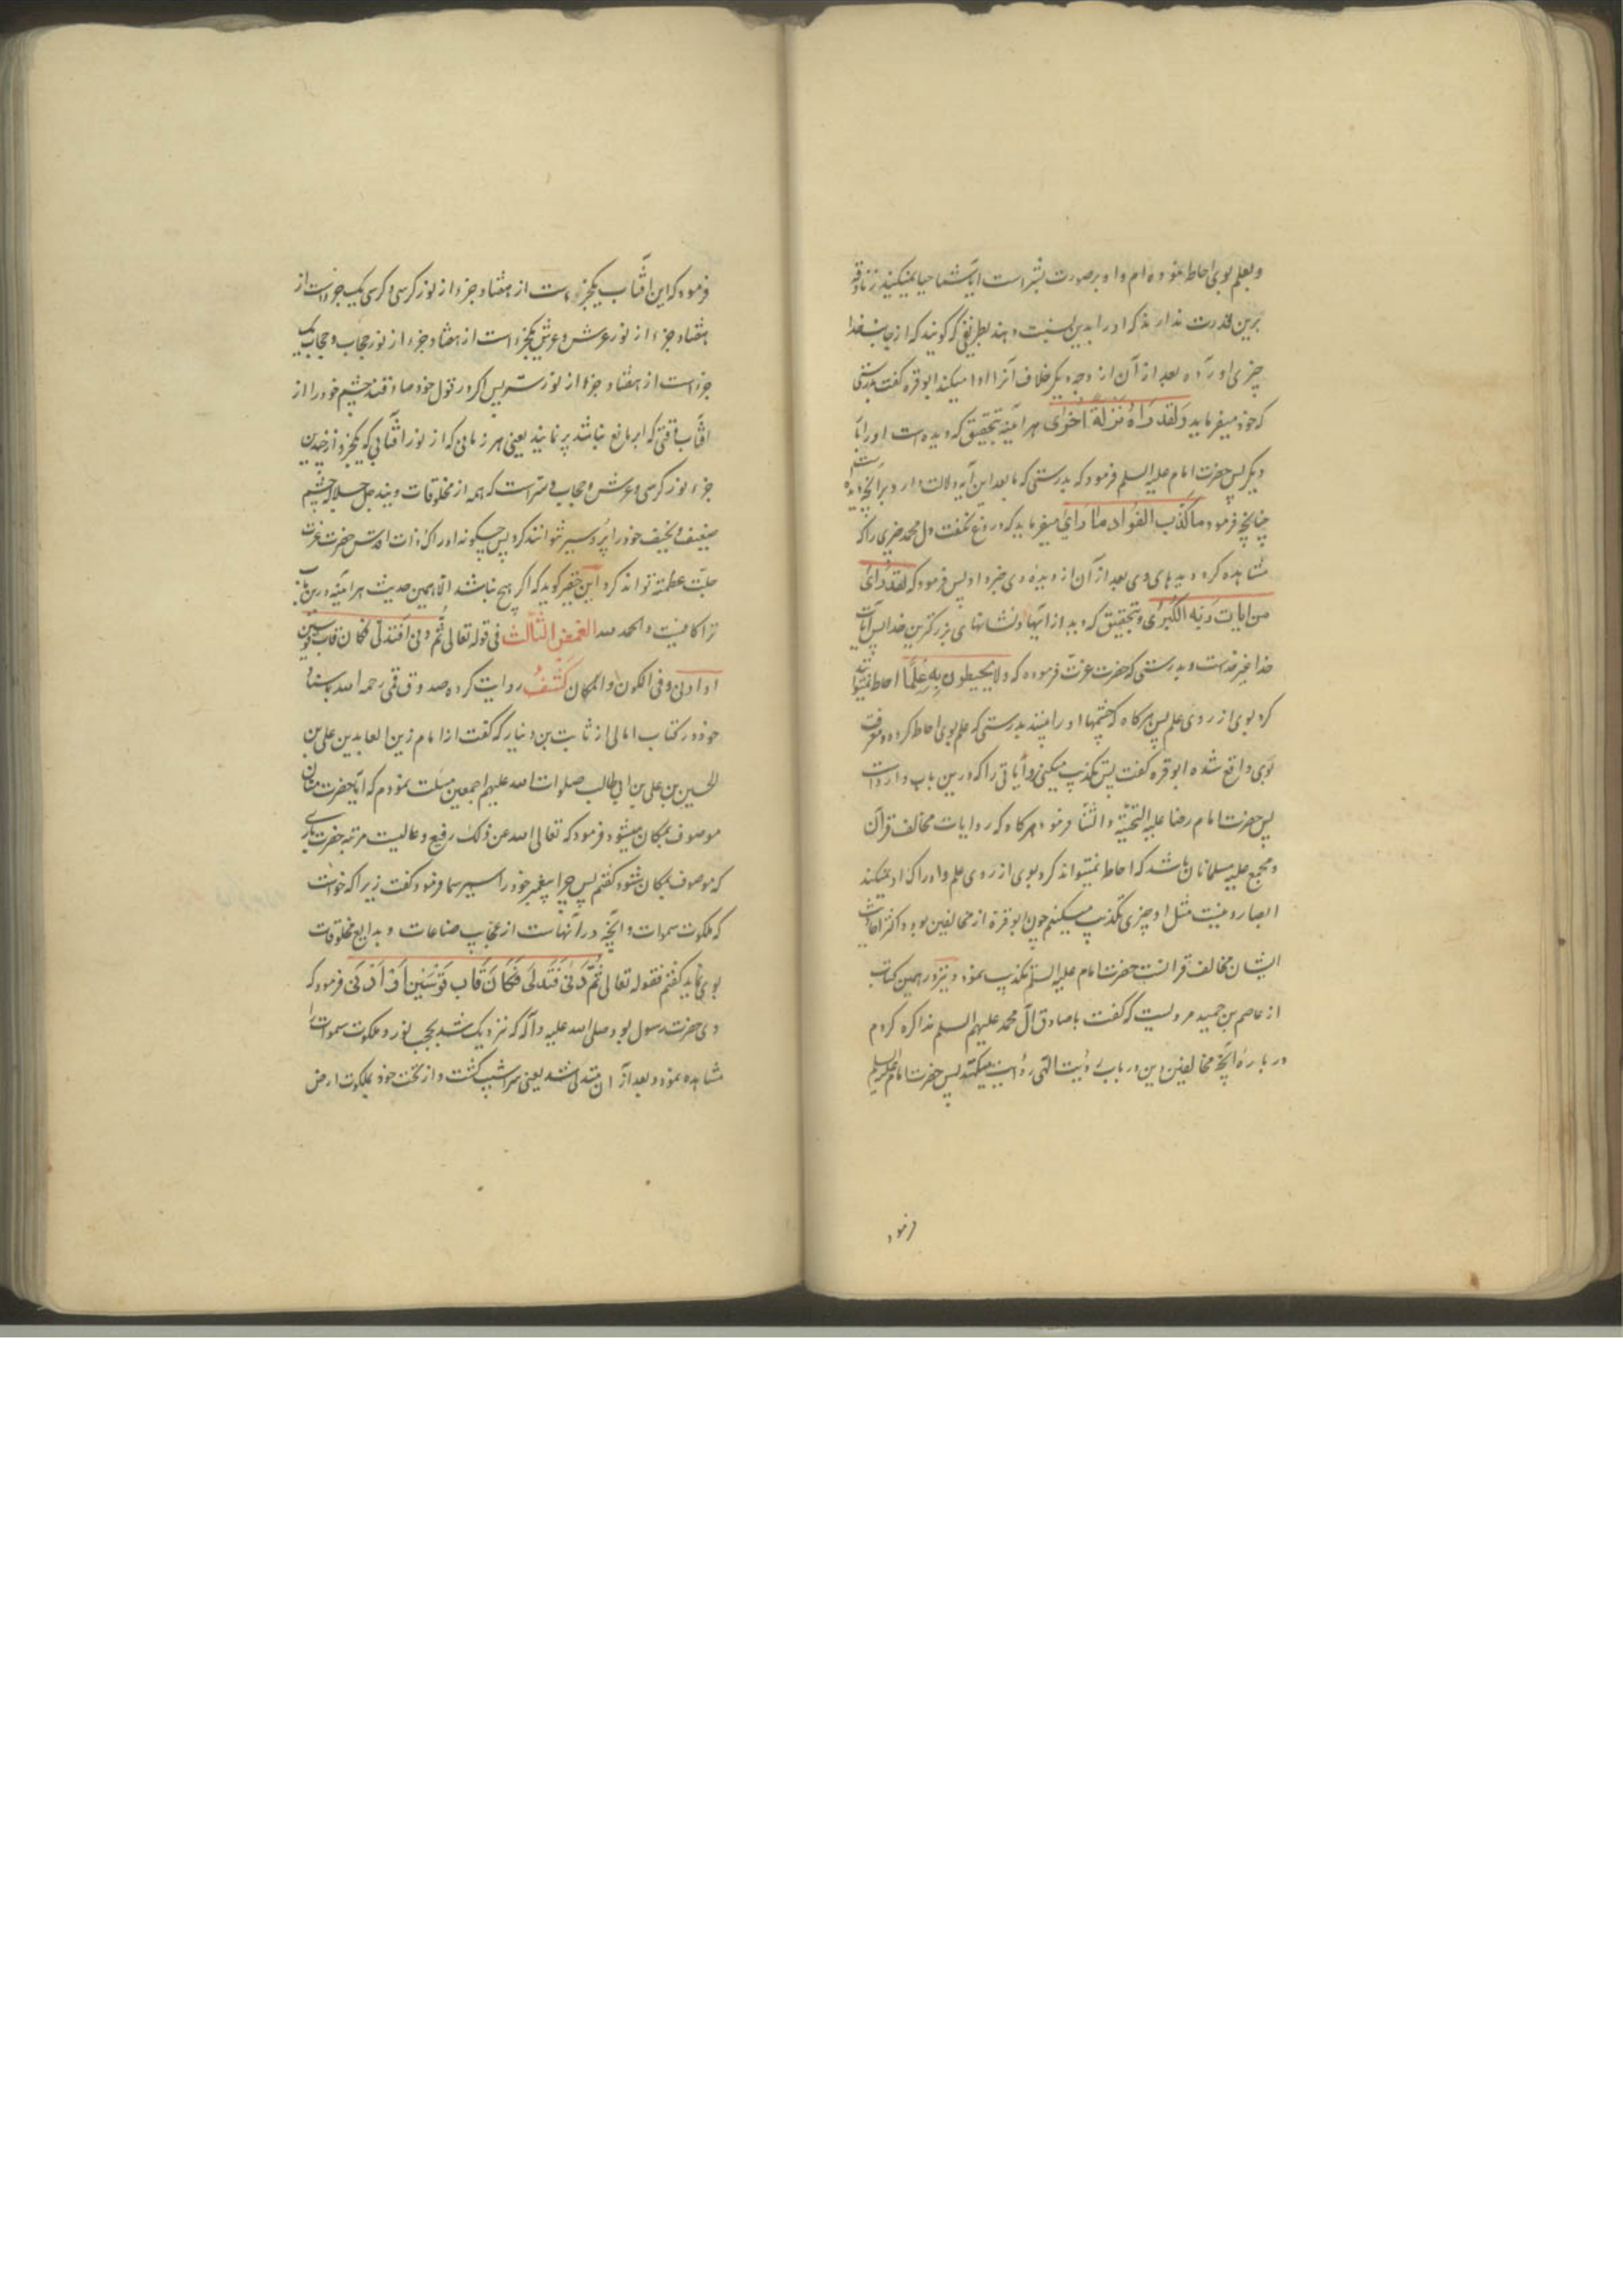 و بعلم بوی احاطه نموده‌ام و او بر صورت بشر است ایا شما حیا نمیکنید زنادقه
برین قدرت ندارند که او را بدین نسبت دهند بطریقی که گویند که از جانب خدا
چیزی اورده بعد از آن از وجه دیگر خلاف آنرا ادا میکند ابو قره گفت بدرستی
که خود میفرماید وَلَقَد رَاهُ نَزلَةً اُخرٰی هر آینه بتحقیق که دیده است او را بار
دیگر پس حضرت امام علیه السلم فرمود که بدرستی که ما بعد این آیه دلالت دارد بر آنچه دیده است
چنانچه فرمود ما کَذَبَ الفُوَاد ما رَایٰ میفرماید که دروغ نگفت دل محمد چیزی را که
مشاهده کرد دیدهای وی بعد از آن از دیدهٔ وی خبر داد پس فرمود که لَقَد رَایٰ
من ایات رَبّه الکُبریٰ و بتحقیق که دید از ایتها و نشانهای بزرگترین خدا پس آیات
خدا غیر خداست و بدرستی که حضرت عزت فرموده که ولا یُحیطون بِه عِلمًا احاطه نمیتوانند
کرد بوی از روی علم پس هرکاه که چشمها او را بینند بدرستی که علم بوی احاطه کرده و معرفت
بوی واقع شده ابو قره گفت پس تکذیب میکنی روایاتی را که درین باب وارداست
پس حضرت امام رضا علیه التحیّة و الثنا فرمود هرکاه که روایات مخالف قرآن
و مجمع علیه مسلمانان باشد که احاطه نمیتواند کرد بوی از روی علم و ادراک او نمیکند
ابصار و نیست مثل او چیزی تکذیب میکنم چون ابو قره از مخالفین بود و اکثر احادیث
ایشان مخالف قرانست حضرت امام علیه السلم تکذیب نمود و نیز در همین کتاب
از عاصم بن حمید مرویست که گفت با صادق آل محمد علیهم السلم مذاکره کردم
در بارهٔ آنچه مخالفین این در باب رؤیت الهی روایت میکنند پس حضرت امام علیه السلم
فرمود
فرمود که این آفتاب یکجزء است از هفتاد جزء از نور کرسی و کرسی یک جزواست از
هفتاد جزء از نور عرش و عرش یکجزء است از هفتاد جزء از نور حجاب و حجاب یک
جزءاست از هفتاد جزء از نور ستر پس اکر در قول خود صادقند چشم خود را از
آفتاب وقتی که ابر مانع نباشد پر نمایند یعنی هر زمانی که از نور آفتابی که یکجزو از چندین
جزء نور کرسی و عرش و حجاب و ستر است که همه از مخلوقات ویند جل جلاله چشم
ضعیف و نحیف خود را پر و سیر نتوانند کرد پس چکونه ادراک ذات اقدس حضرت عزت
جلت عظمته تواند کرد این حقیر کوید که اکر هیچ نباشد الا همین حدیث هر آینه درین باب
ترا کافیست والحمد لله الغمض الثالث فی قوله تعالی ثُم دنی فَتدلی فکان قاب قوسین
او ادنی وفی الکون والمکان کَشفٌ روایت کرده صدوق قمی رحمه الله باسناد
خود در کتاب امالی از ثابت بن دینار که گفت از امام زین العابدین علی بن
الحسین بن علی بن ابی طالب صلوات الله علیهم اجمعین مسئلت نمودم که آیا حضرت منان
موصوف بمکان میشود فرمود که تعالی الله عن ذلک رفیع و عالیست مرتبه حضرت باری
که موصوف بمکان شود گفتم پس چرا پیغمبر خود را سیر سما فرمود گفت زیرا که خواست
که ملکوت سموات و آنچه در آنهاست از عجایب صناعات و بدایع مخلوقات
بوی نماید گفتم فقوله تعالی ثُمَّ دَنٰی فَتَدَلّٰی فَکَانَ قَابَ قَوْسَیْنِ اَوْ اَدْنٰی فرمود که
وی حضرت رسول بود صلی الله علیه و آله که نزدیک شد بحجب نور و ملکوت سموات را
مشاهده نمود و بعد از آن متدلی شد یعنی سراشیب گشت و از تحت خود بملکوت ارض